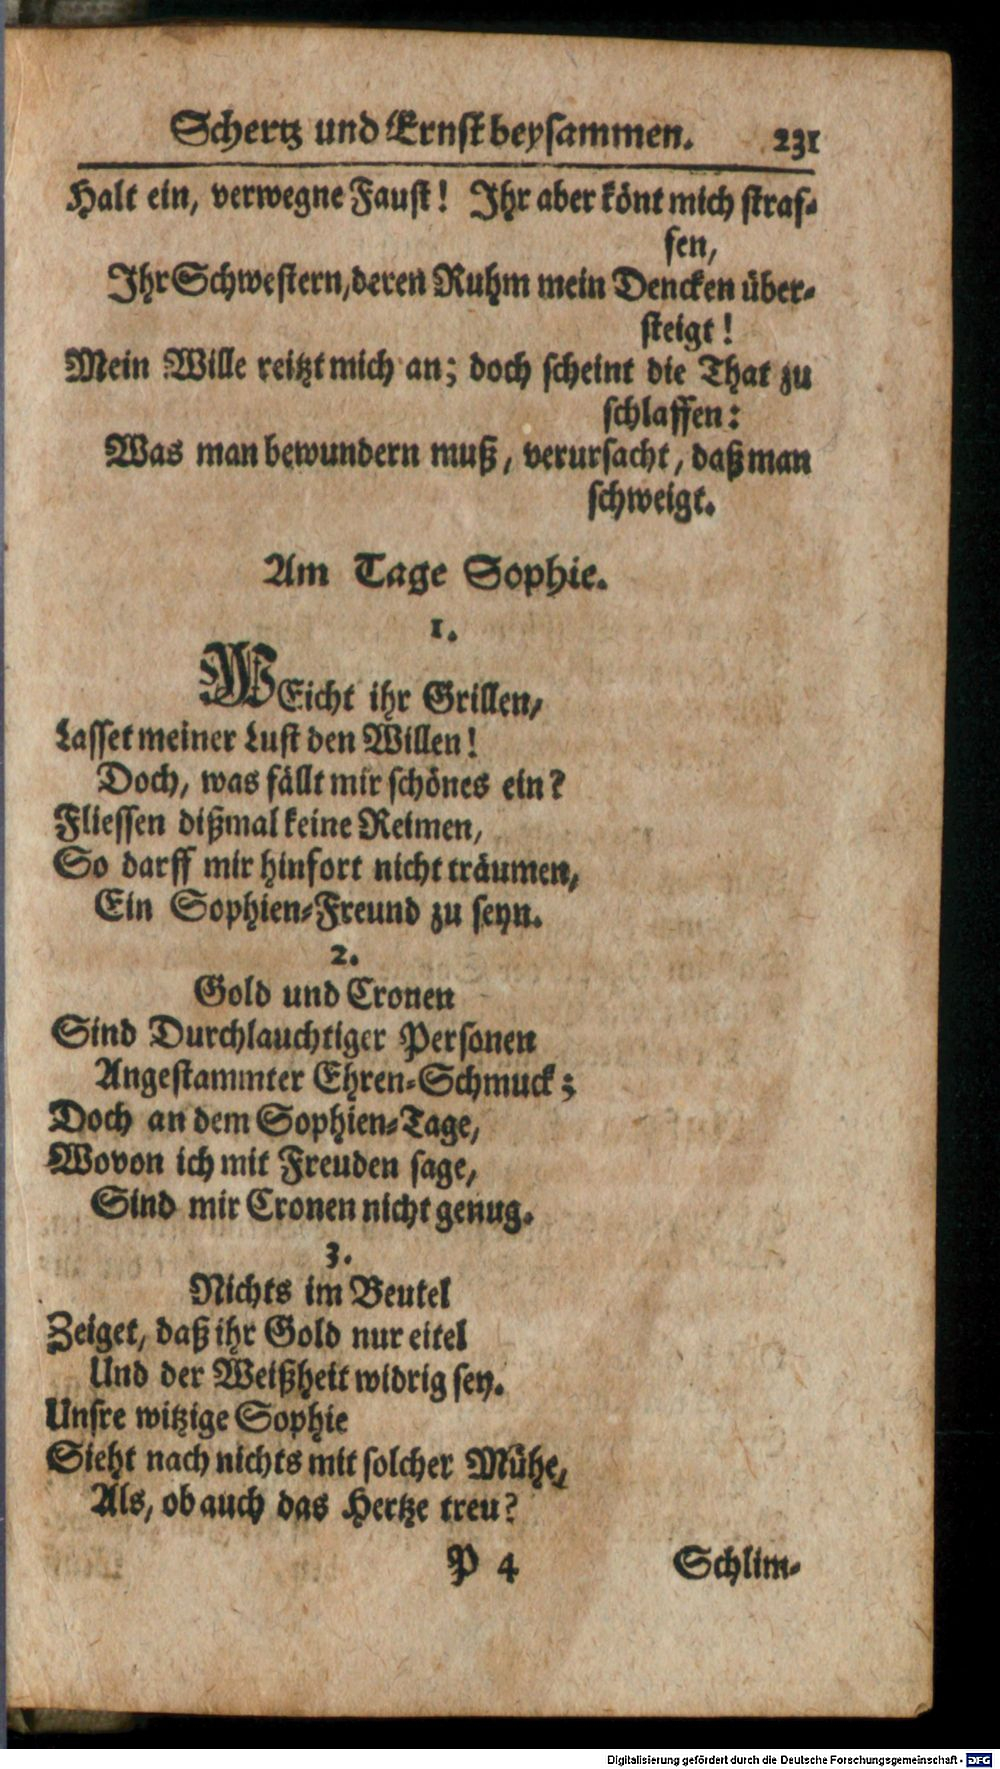 Schertz und Ernst beysammen. 231
Halt ein, verwegne Faust! Ihr aber könt mich straf-
fen,
Ihr Schwestern, deren Ruhm mein Dencken über-
steigt!
Mein Wille reitzt mich an; doch scheint die That zu
schlaffen:
Was man bewundern muß, verursacht, daß man
schweigt.
Am Tage Sophie.
1.
WEicht ihr Grillen,
Lasset meiner Lust den Willen!
Doch, was fällt mir schönes ein?
Fliessen dißmal keine Reimen,
So darff mir hinfort nicht träumen,
Ein Sophien-Freund zu seyn.
2.
Gold und Cronen
Sind Durchlauchtiger Personen
Angestammter Ehren-Schmuck;
Doch an dem Sophien-Tage,
Wovon ich mit Freuden sage,
Sind mir Cronen nicht genug.
3.
Nichts im Beutel
Zeiget, daß ihr Gold nur eitel
Und der Weißheit widrig sey.
Unsre witzige Sophie
Sieht nach nichts mit solcher Mühe,
Als, ob auch das Hertze treu?
P 4 Schlim-
Digitalisierung gefördert durch die Deutsche Forschungsgemeinschaft - DFG